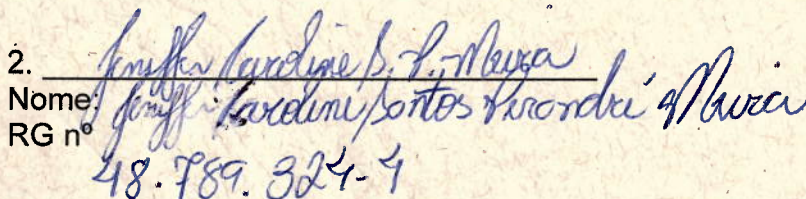 2. Jeniffer Caroline S. P. Meira
Nome: Jeniffer Caroline Santos Meira
RG nº
48.789.324-4